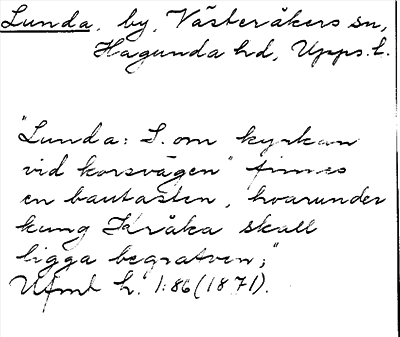 Lunda, by, Västeråkers sn,
Hagunda hd, Upps. l.
"Lunda: S. om kyrkan
vid korsvägen" finnes
en bautasten, hvarunder
kung Kråka skall
ligga begrafven;"
Ufmt h. 1:86 (1871).